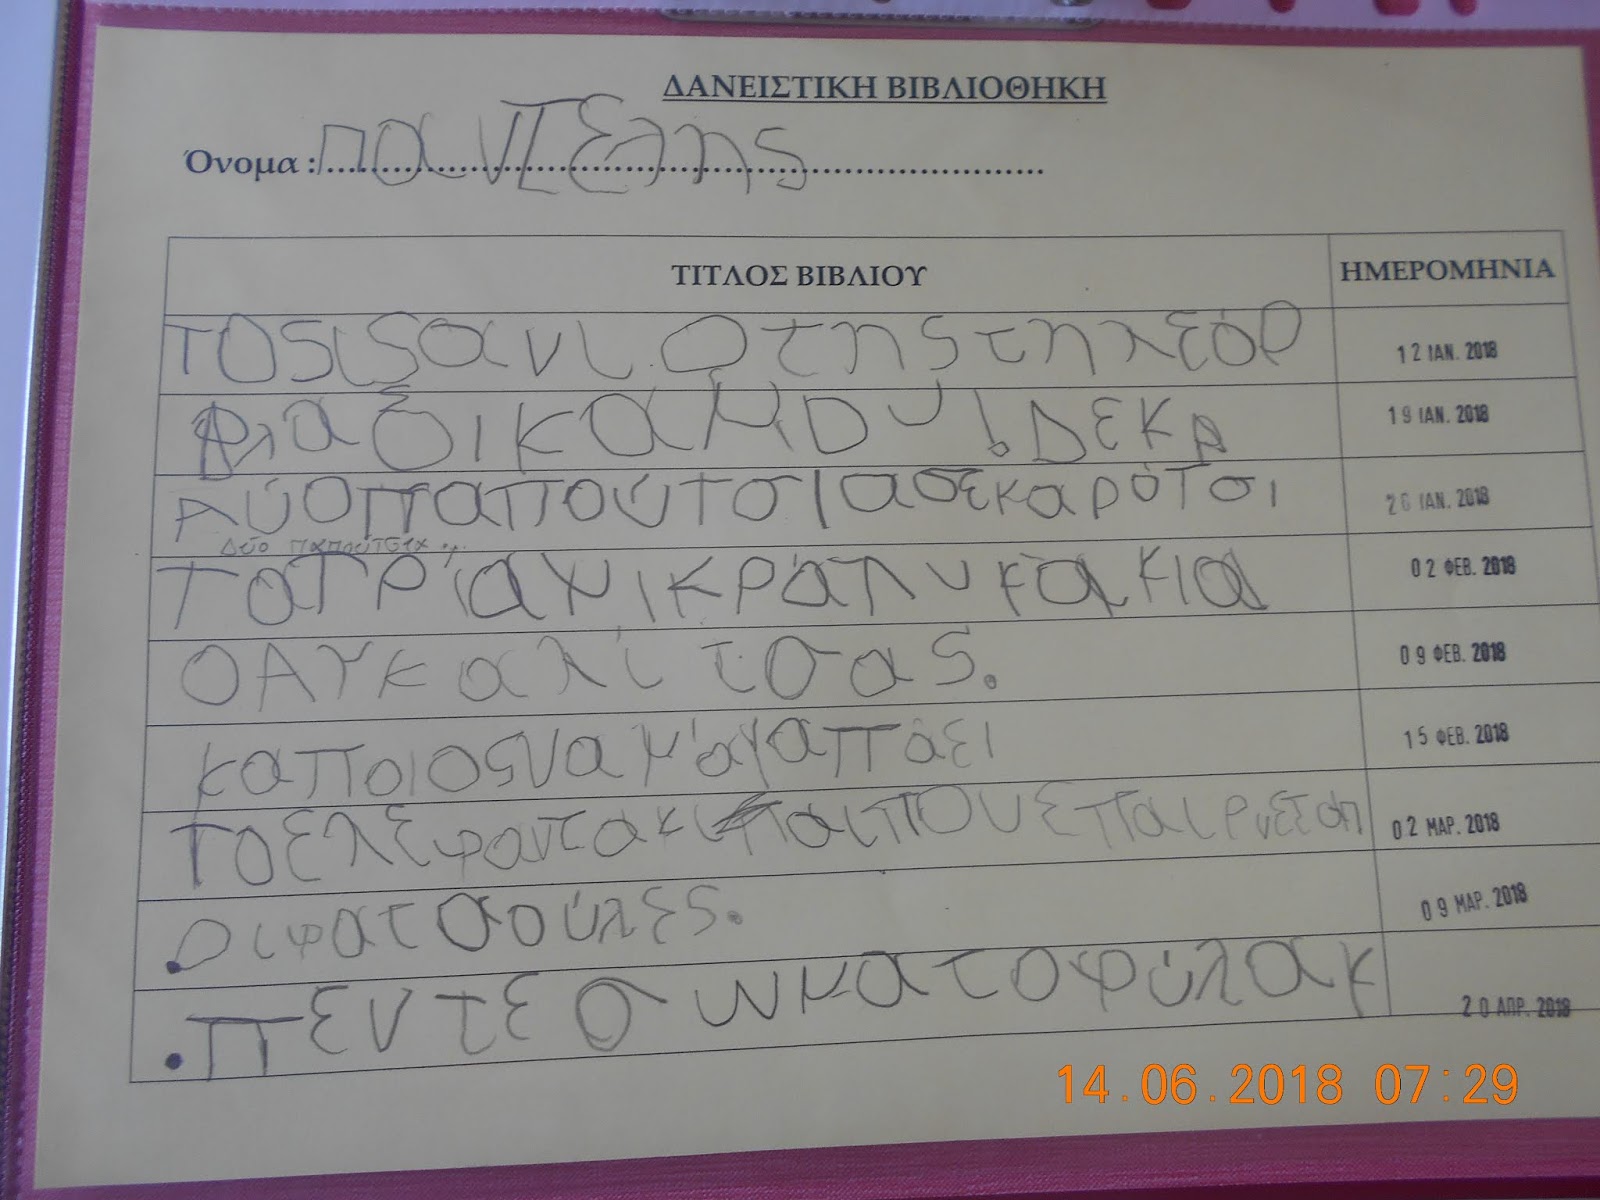 ΔΑΝΕΙΣΤΙΚΗ ΒΙΒΛΙΟΘΗΚΗ
Όνομα : παντελης
ΤΙΤΛΟΣ ΒΙΒΛΙΟΥ ΗΜΕΡΟΜΗΝΙΑ
12 ΙΑΝ. 2018
19 ΙΑΝ. 2018
Αύο παπουτσια σε καρότσι 26 ΙΑΝ. 2018
Δύο παπούτσια
Τα τρία μικρά λυκάκια 02 ΦΕΒ. 2018
Ο Λυκαλίτσας. 09 ΦΕΒ. 2018
καποιος να μ'άγαπάει 15 ΦΕΒ. 2018
Το ελεφαντακι που επαιρνε 02 ΜΑΡ. 2018
οι φατσαούλες. 09 ΜΑΡ. 2018
πεντε σωματοφύλακ 20 ΑΠΡ. 2018
14.06.2018 07:29